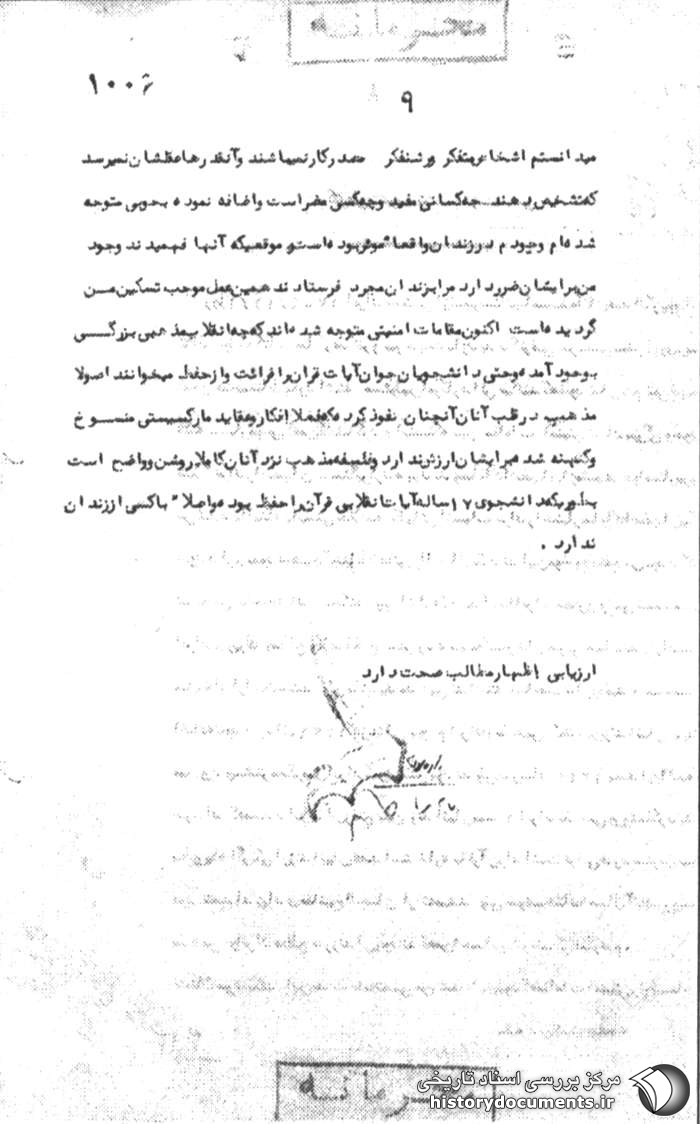 محرمانه
۱۰۰۶
۹
میدانستم اشخاص متفکر وروشنفکر مصدرکارنمیباشند وآنقدرهاعقلشان نمیرسد
که تشخیص دهند چه کسانی مفید وچه کسی مضراست واضافه نموده بخوبی متوجه
شده ام وجودم در زندان واقعا موثر بوده است و موقعیکه آنها فهمیدند وجود
من برایشان ضرر دارد مرا بزندان مجرد فرستادند همین عمل موجب تسکین من
گردیده است اکنون مقامات امنیتی متوجه شده اند که چه انقلاب مذهبی بزرگی
بوجود آمده وحتی دانشجویان جوان آیات قرآن را قرائت واز حفظ میخوانند اصولا
مذهب در قلب آنان آنچنان نفوذ کرده که فعلا افکار وعقاید مارکسیستی منسوخ
وکهنه شده برایشان ارزش ندارد وفلسفه مذهب نزد آنان کاملا روشن وواضح است
بطوریکه دانشجوی ۱۷ ساله آیات انقلابی قرآن را حفظ بود واصلا" باکی اززندان
ندارد .
ارزیابی اظهار مطالب صحت دارد
محرمانه
مرکز بررسی اسناد تاریخی
historydocuments.ir